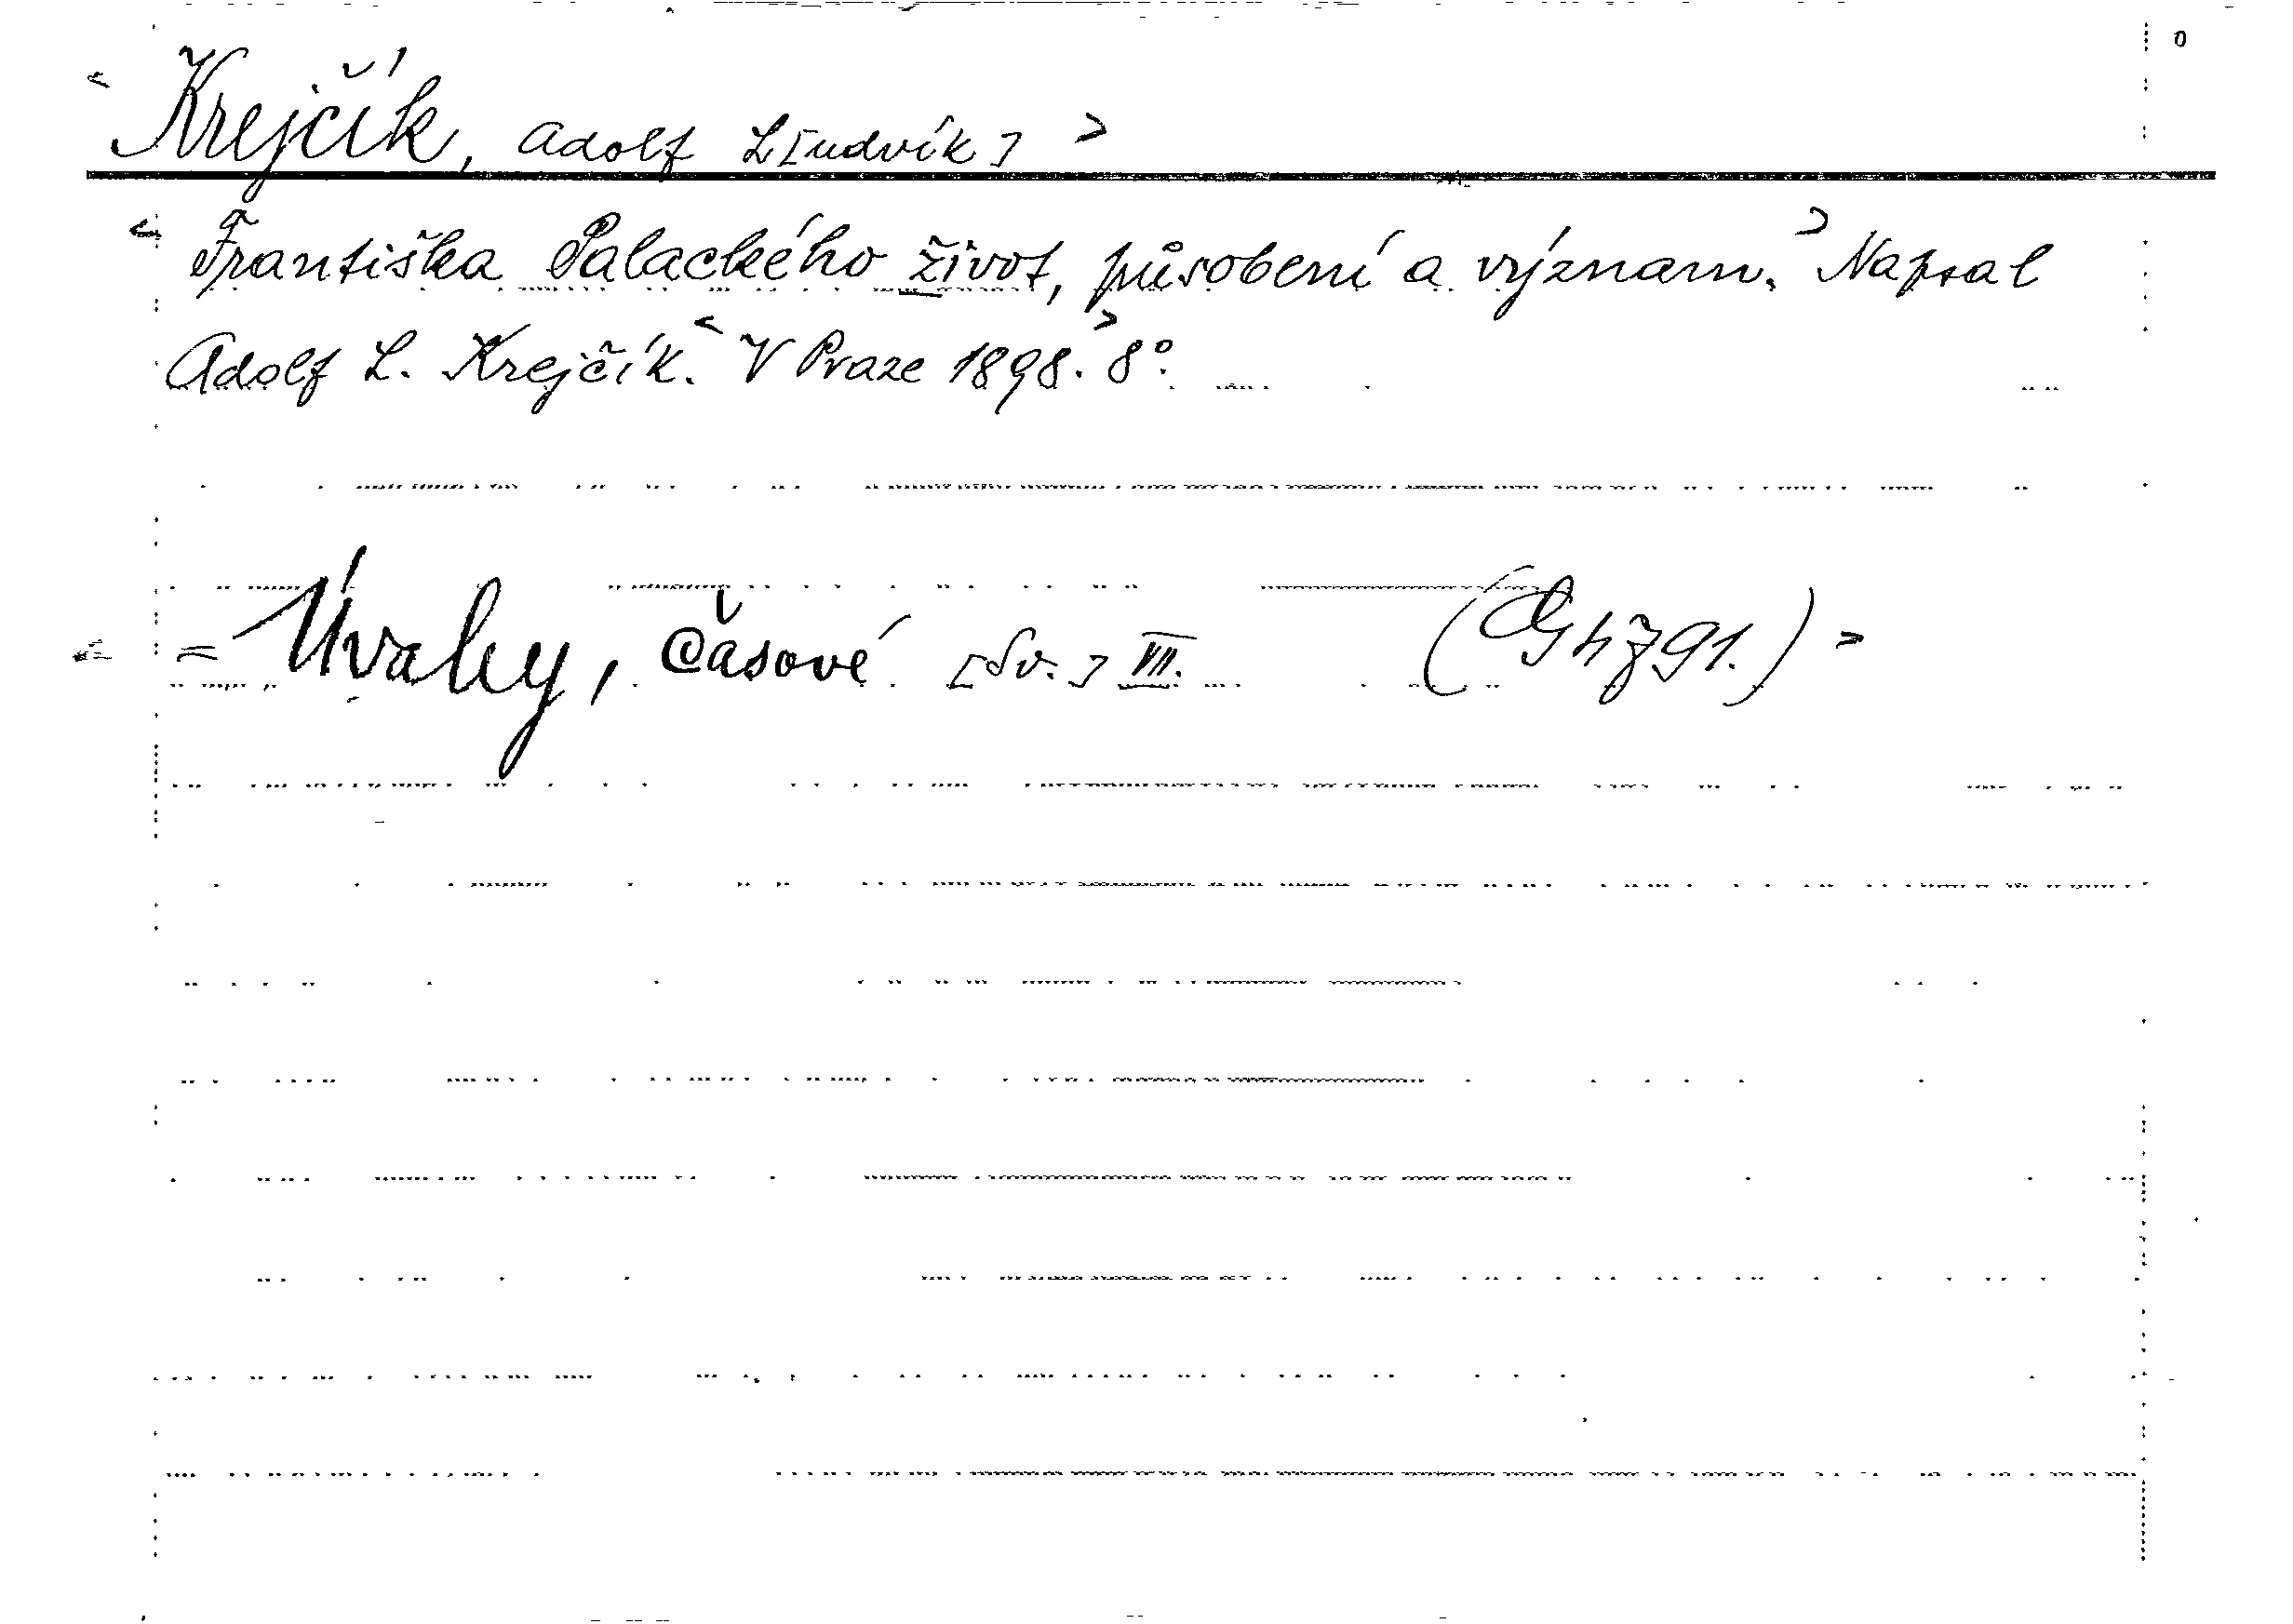 < Krejčík, Adolf L[udvík] >
< Františka Palackého život, působení a význam. > Napsal
Adolf L. Krejčík. < V Praze 1898. > 8°.
< = Úvahy, časové [Sv.] VII. >